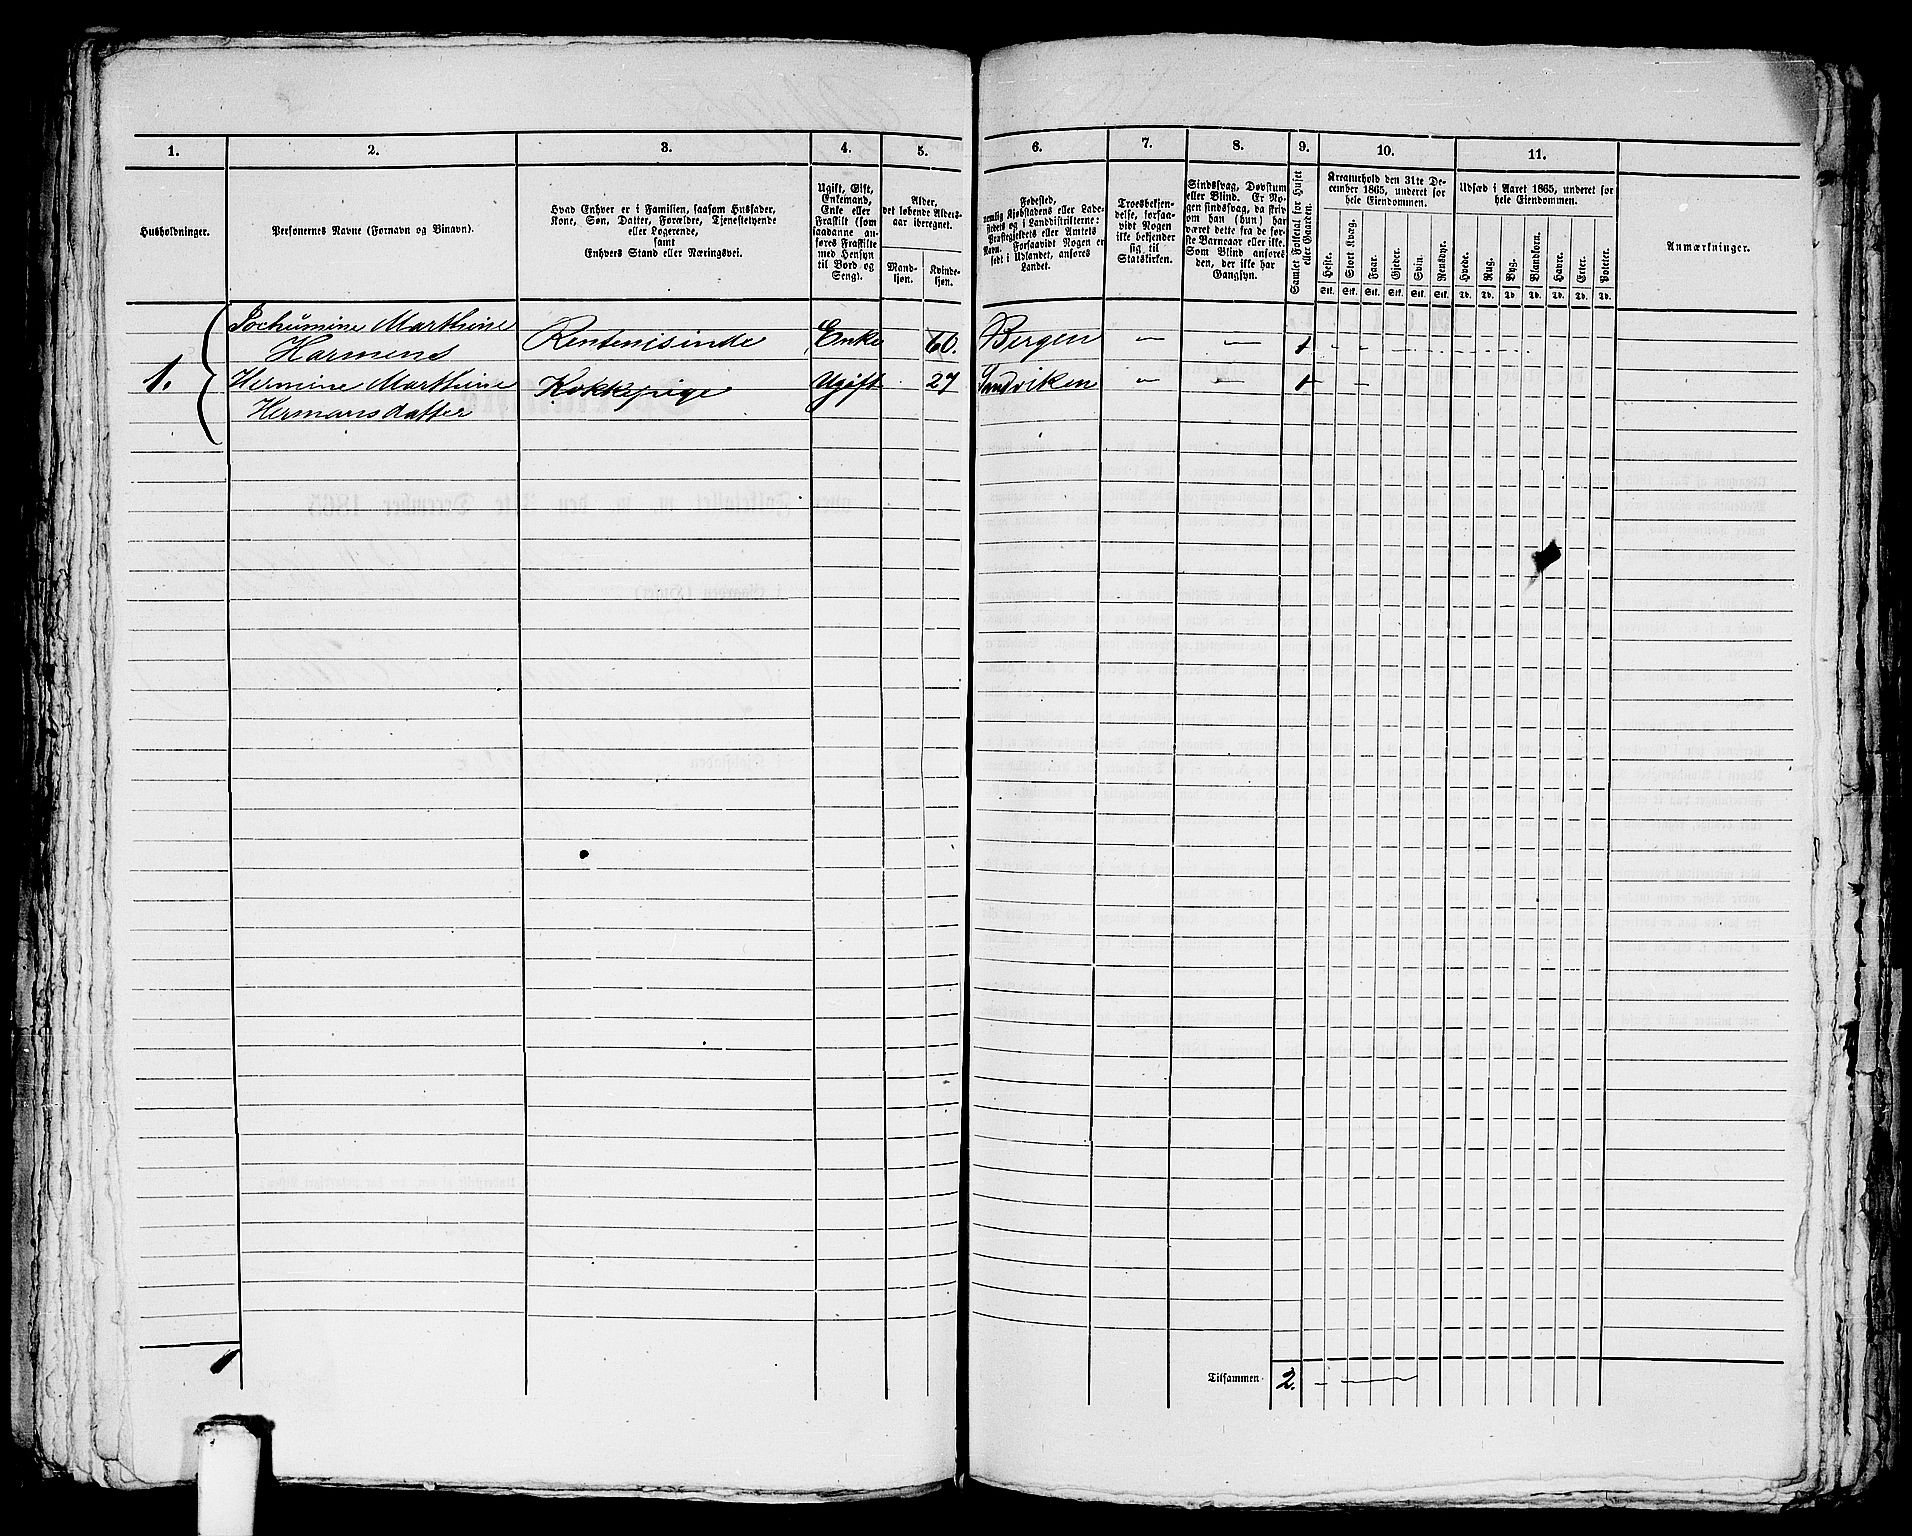 1.
2.
3.
4.
5.
6.
7.
8.
9.
10.
11.
Husholdninger.
Personernes Navne (Fornavn og Binavn).
Hvad Enhver er i Familien, saasom Husfader,
Kone, Søn, Datter, Forældre, Tjenestetyende
eller Logerende,
samt
Enhvers Stand eller Næringsvei.
Ugift, Gift,
Enkemand,
Enke eller
Fraskilt (som
saadanne an-
føres Fraskilte
med Hensyn
til Bord og
Seng).
Alder,
det løbende Alders-
aar iberegnet.
Mand-
kjøn.
Kvinde-
kjøn.
Fødested,
nemlig Kjøbstadens eller Lade-
stedets og i Landdistrikterne:
Præstegjeldets eller Amtets
Navn. Forsaavidt Nogen er
født i Udlandet, anføres
Landet.
Troesbekjen-
delse, forsaa-
vidt Nogen
ikke bekjender
sig til
Statskirken.
Sindssvag, Døvstum
eller Blind. Er No-
gen sindssvag, da skriv
om han (hun) har
været dette fra de før-
ste Barneaar eller ikke.
Som Blind anføres
den, der ikke har
Gangsyn.
Samlet Folketal for Huset
eller Gaarden.
Kreaturhold den 31te De-
cember 1865, underet for
hele Eiendommen.
Heste.
Stort Kvæg.
Faar.
Gjeder.
Svin.
Rensdyr.
Stk. Stk. Stk. Stk. Stk. Stk.
Udsæd i Aaret 1865, underet for
hele Eiendommen.
Hvede.
Rug.
Byg.
Blandkorn.
Havre.
Erter.
Poteter.
Td. Td. Td. Td. Td. Td. Td.
Anmærkninger.
1.
Jochumine Marthine
Harmens Rentenisinde Enke 60. Bergen — — 1 — —
Hermine Marthine Kokkepige Ugift 27 Sandviken — — 1 —
Hermansdatter
Tilsammen 2. —